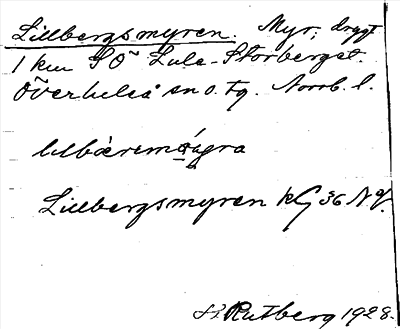 Lillbergsmyren. Myr, drygt
1 km SÖ Lule-Storberget.
Överluleå sn o. tg. Norrb. l.
Lillbergsmyren kG 36 N.
H. Rutberg 1928.